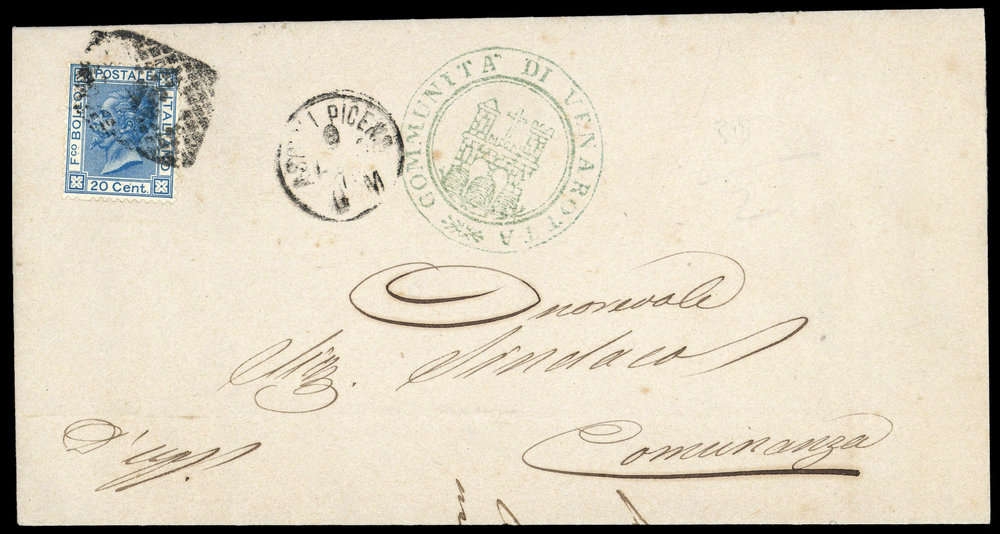 POSTALE
Fco BOLLO
ITALIANO
20 Cent.
PICENO
COMMUNITA' DI VENAROTTA
Onorevole
Sig. Sindaco
D'uff
Comunanza